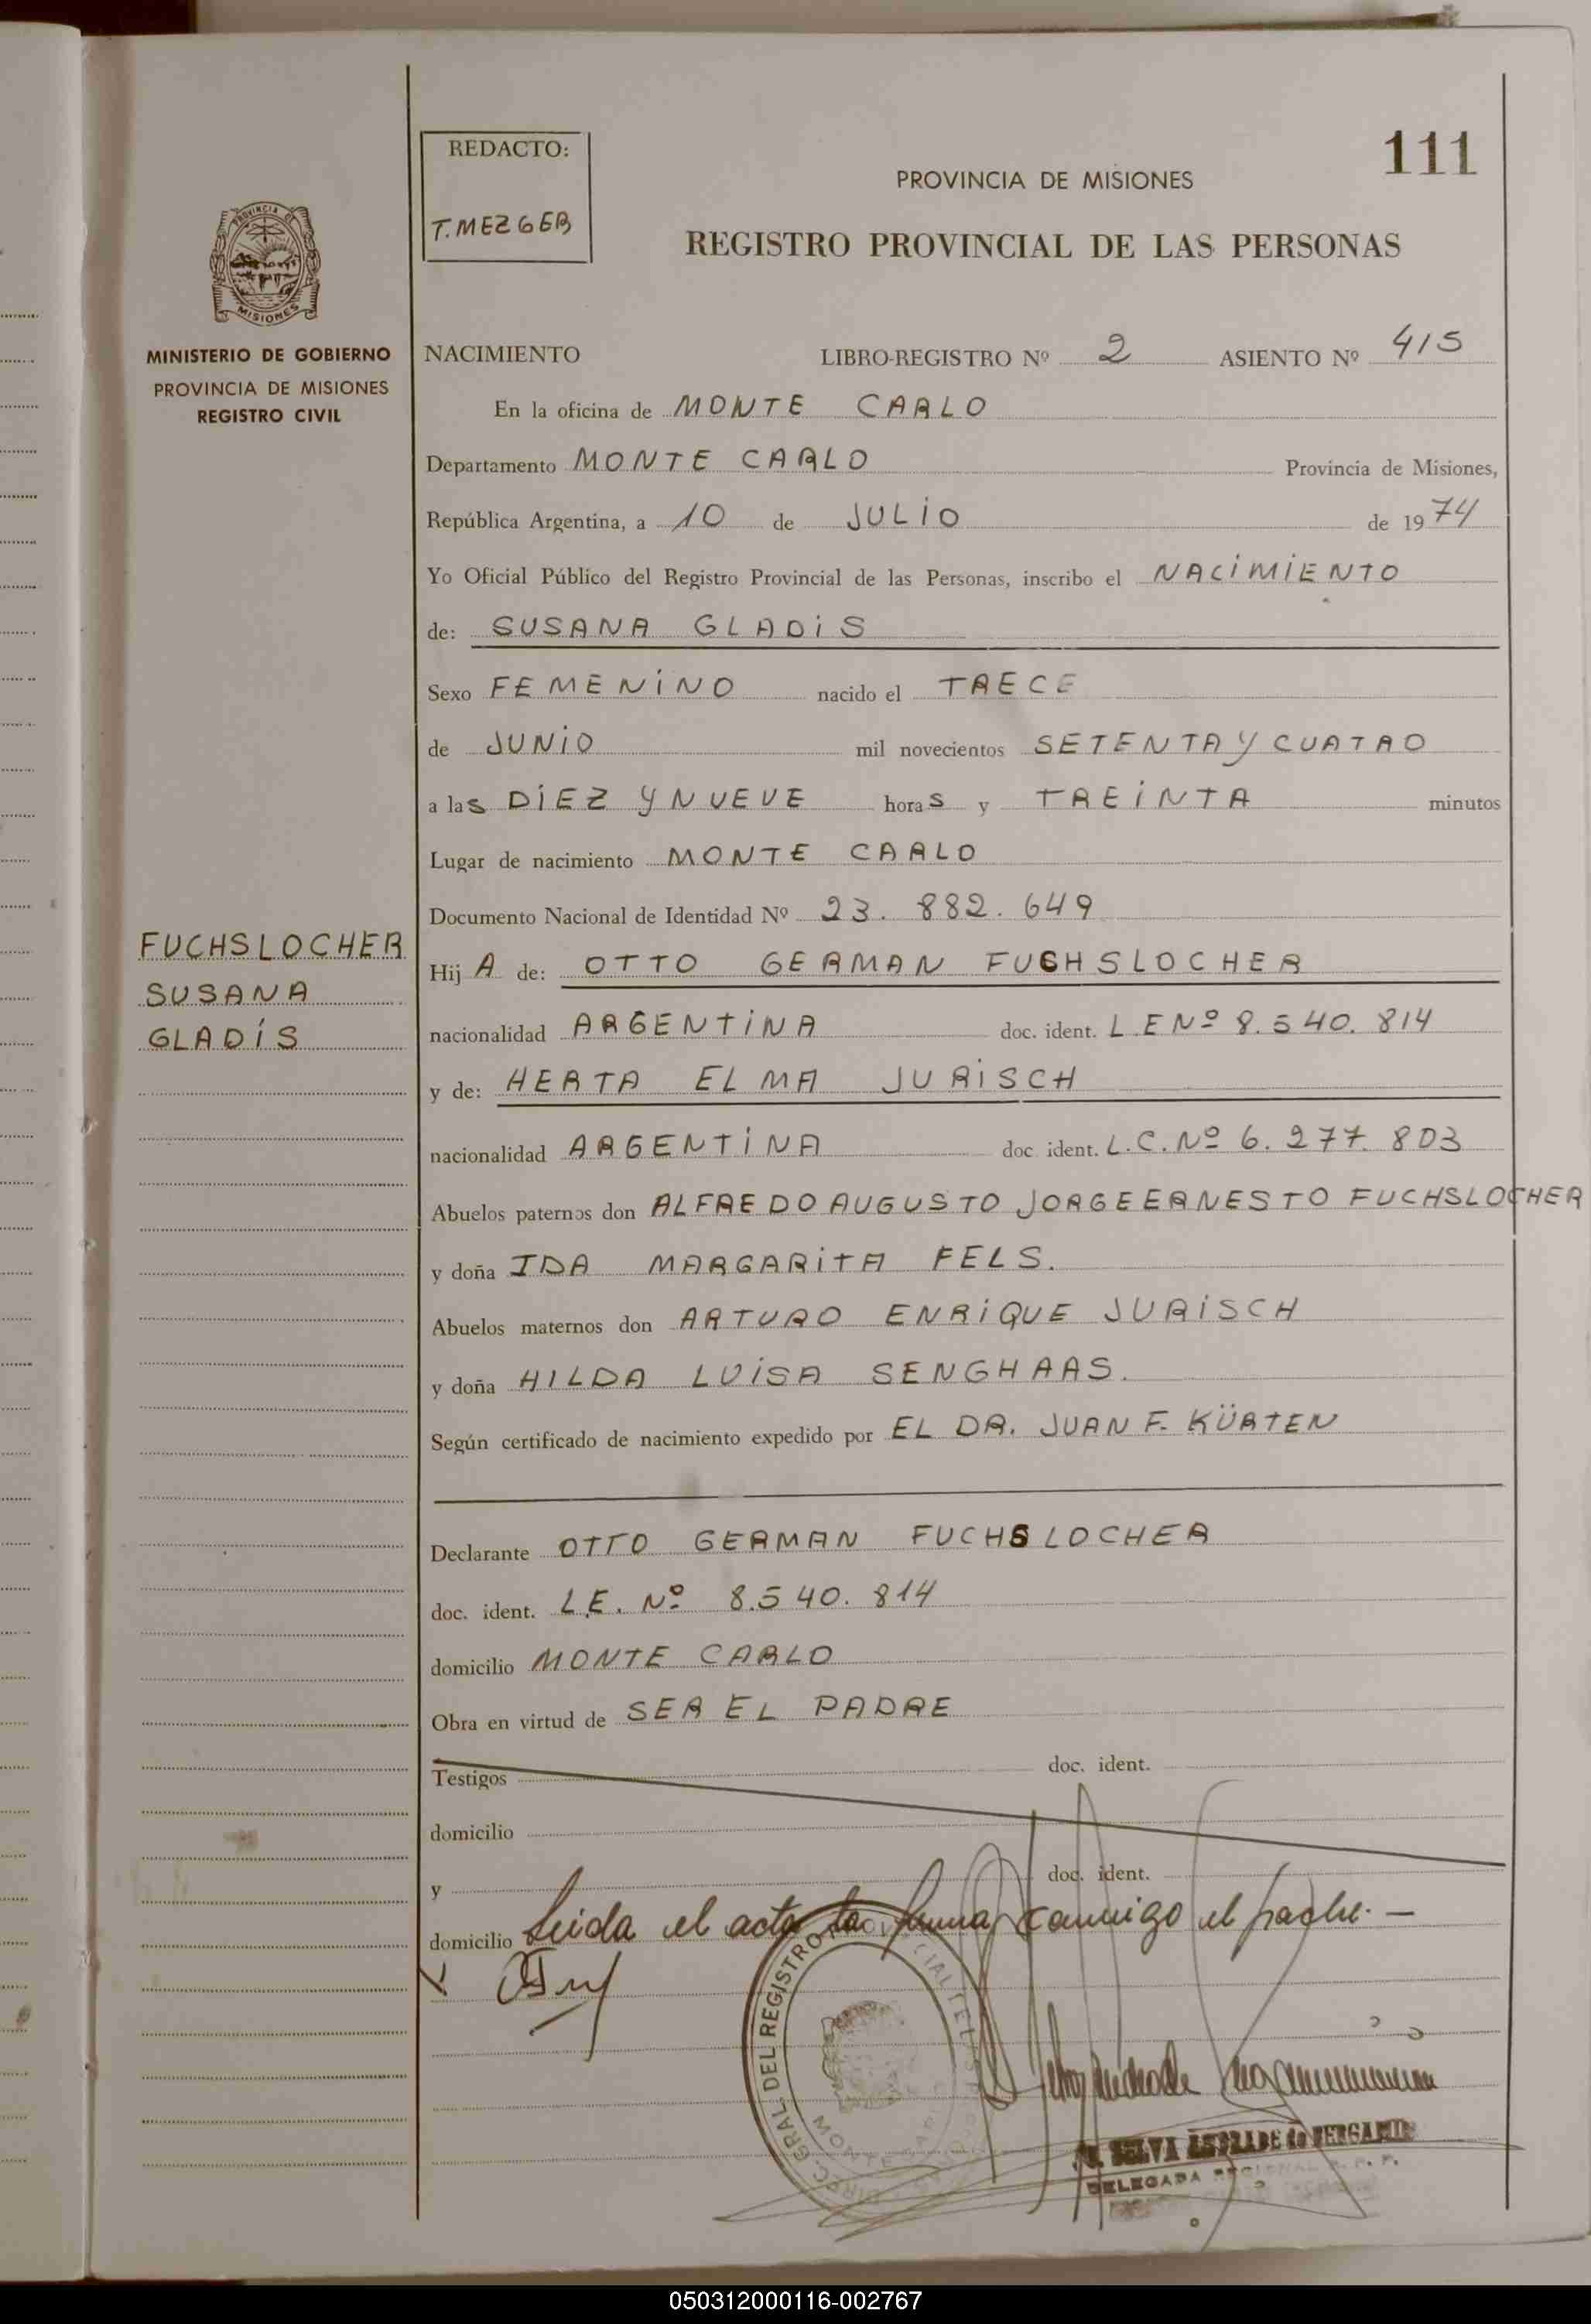 111
REDACTO:
T. MEZGER
PROVINCIA DE MISIONES
REGISTRO PROVINCIAL DE LAS PERSONAS
PROVINCIA DE
MISIONES
MINISTERIO DE GOBIERNO
PROVINCIA DE MISIONES
REGISTRO CIVIL
NACIMIENTO LIBRO-REGISTRO Nº 2 ASIENTO Nº 415
En la oficina de MONTE CARLO
Departamento MONTE CARLO Provincia de Misiones,
República Argentina, a 10 de JULIO de 1974
Yo Oficial Público del Registro Provincial de las Personas, inscribo el NACIMIENTO
de: SUSANA GLADIS
Sexo FEMENINO nacido el TRECE
de JUNIO mil novecientos SETENTA Y CUATRO
a las DIEZ Y NUEVE horas y TREINTA minutos
Lugar de nacimiento MONTE CARLO
Documento Nacional de Identidad Nº 23.882.649
FUCHSLOCHER
SUSANA
GLADÍS
Hij A de: OTTO GERMAN FUCHSLOCHER
nacionalidad ARGENTINA doc. ident. L E Nº 8.540.814
y de: HERTA ELMA JURISCH
nacionalidad ARGENTINA doc. ident. L.C. Nº 6.277.803
Abuelos paternos don ALFREDO AUGUSTO JORGE ERNESTO FUCHSLOCHER
y doña IDA MARGARITA FELS.
Abuelos maternos don ARTURO ENRIQUE JURISCH
y doña HILDA LUISA SENGHAAS.
Según certificado de nacimiento expedido por EL DR. JUAN F. KÜRTEN
Declarante OTTO GERMAN FUCHSLOCHER
doc. ident. L.E. Nº 8.540.814
domicilio MONTE CARLO
Obra en virtud de SER EL PADRE
Testigos doc. ident.
domicilio
y doc. ident.
domicilio Leida el acta la firma conmigo el padre. —
DIREC. GRAL. DEL REGISTRO
MONTE CARLO
SELVA ANDRADE de BERGAMIN
DELEGADA REGIONAL R. P. P.
050312000116-002767